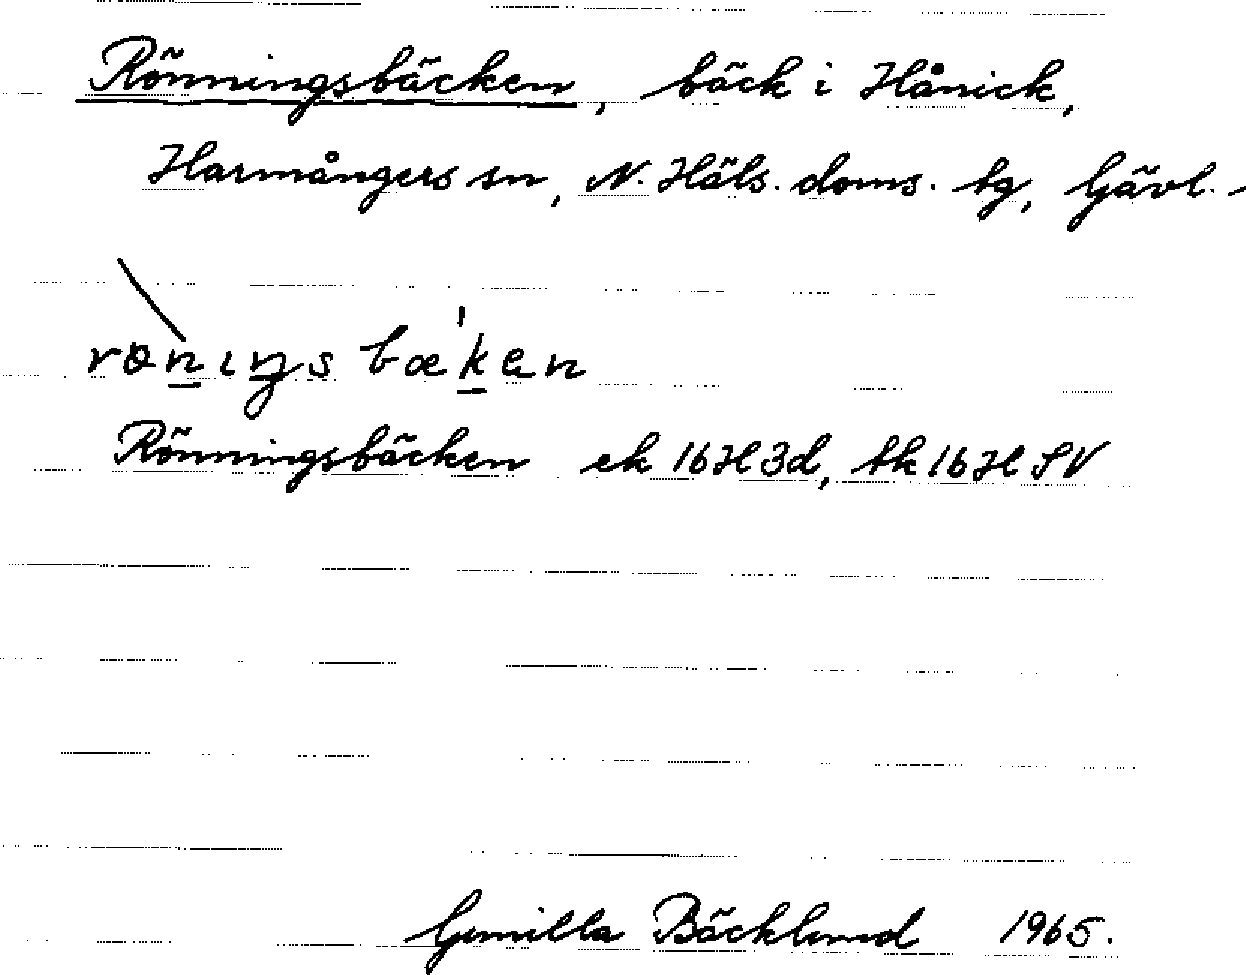 Rönningsbäcken, bäck i Hånick,
Harmångers sn, N. Häls. doms. tg, Gävl. -
rönıŋs bæ'ken
Rönningsbäcken ek 16H 3d, tk 16H SV
Gunilla Bäcklund 1965.